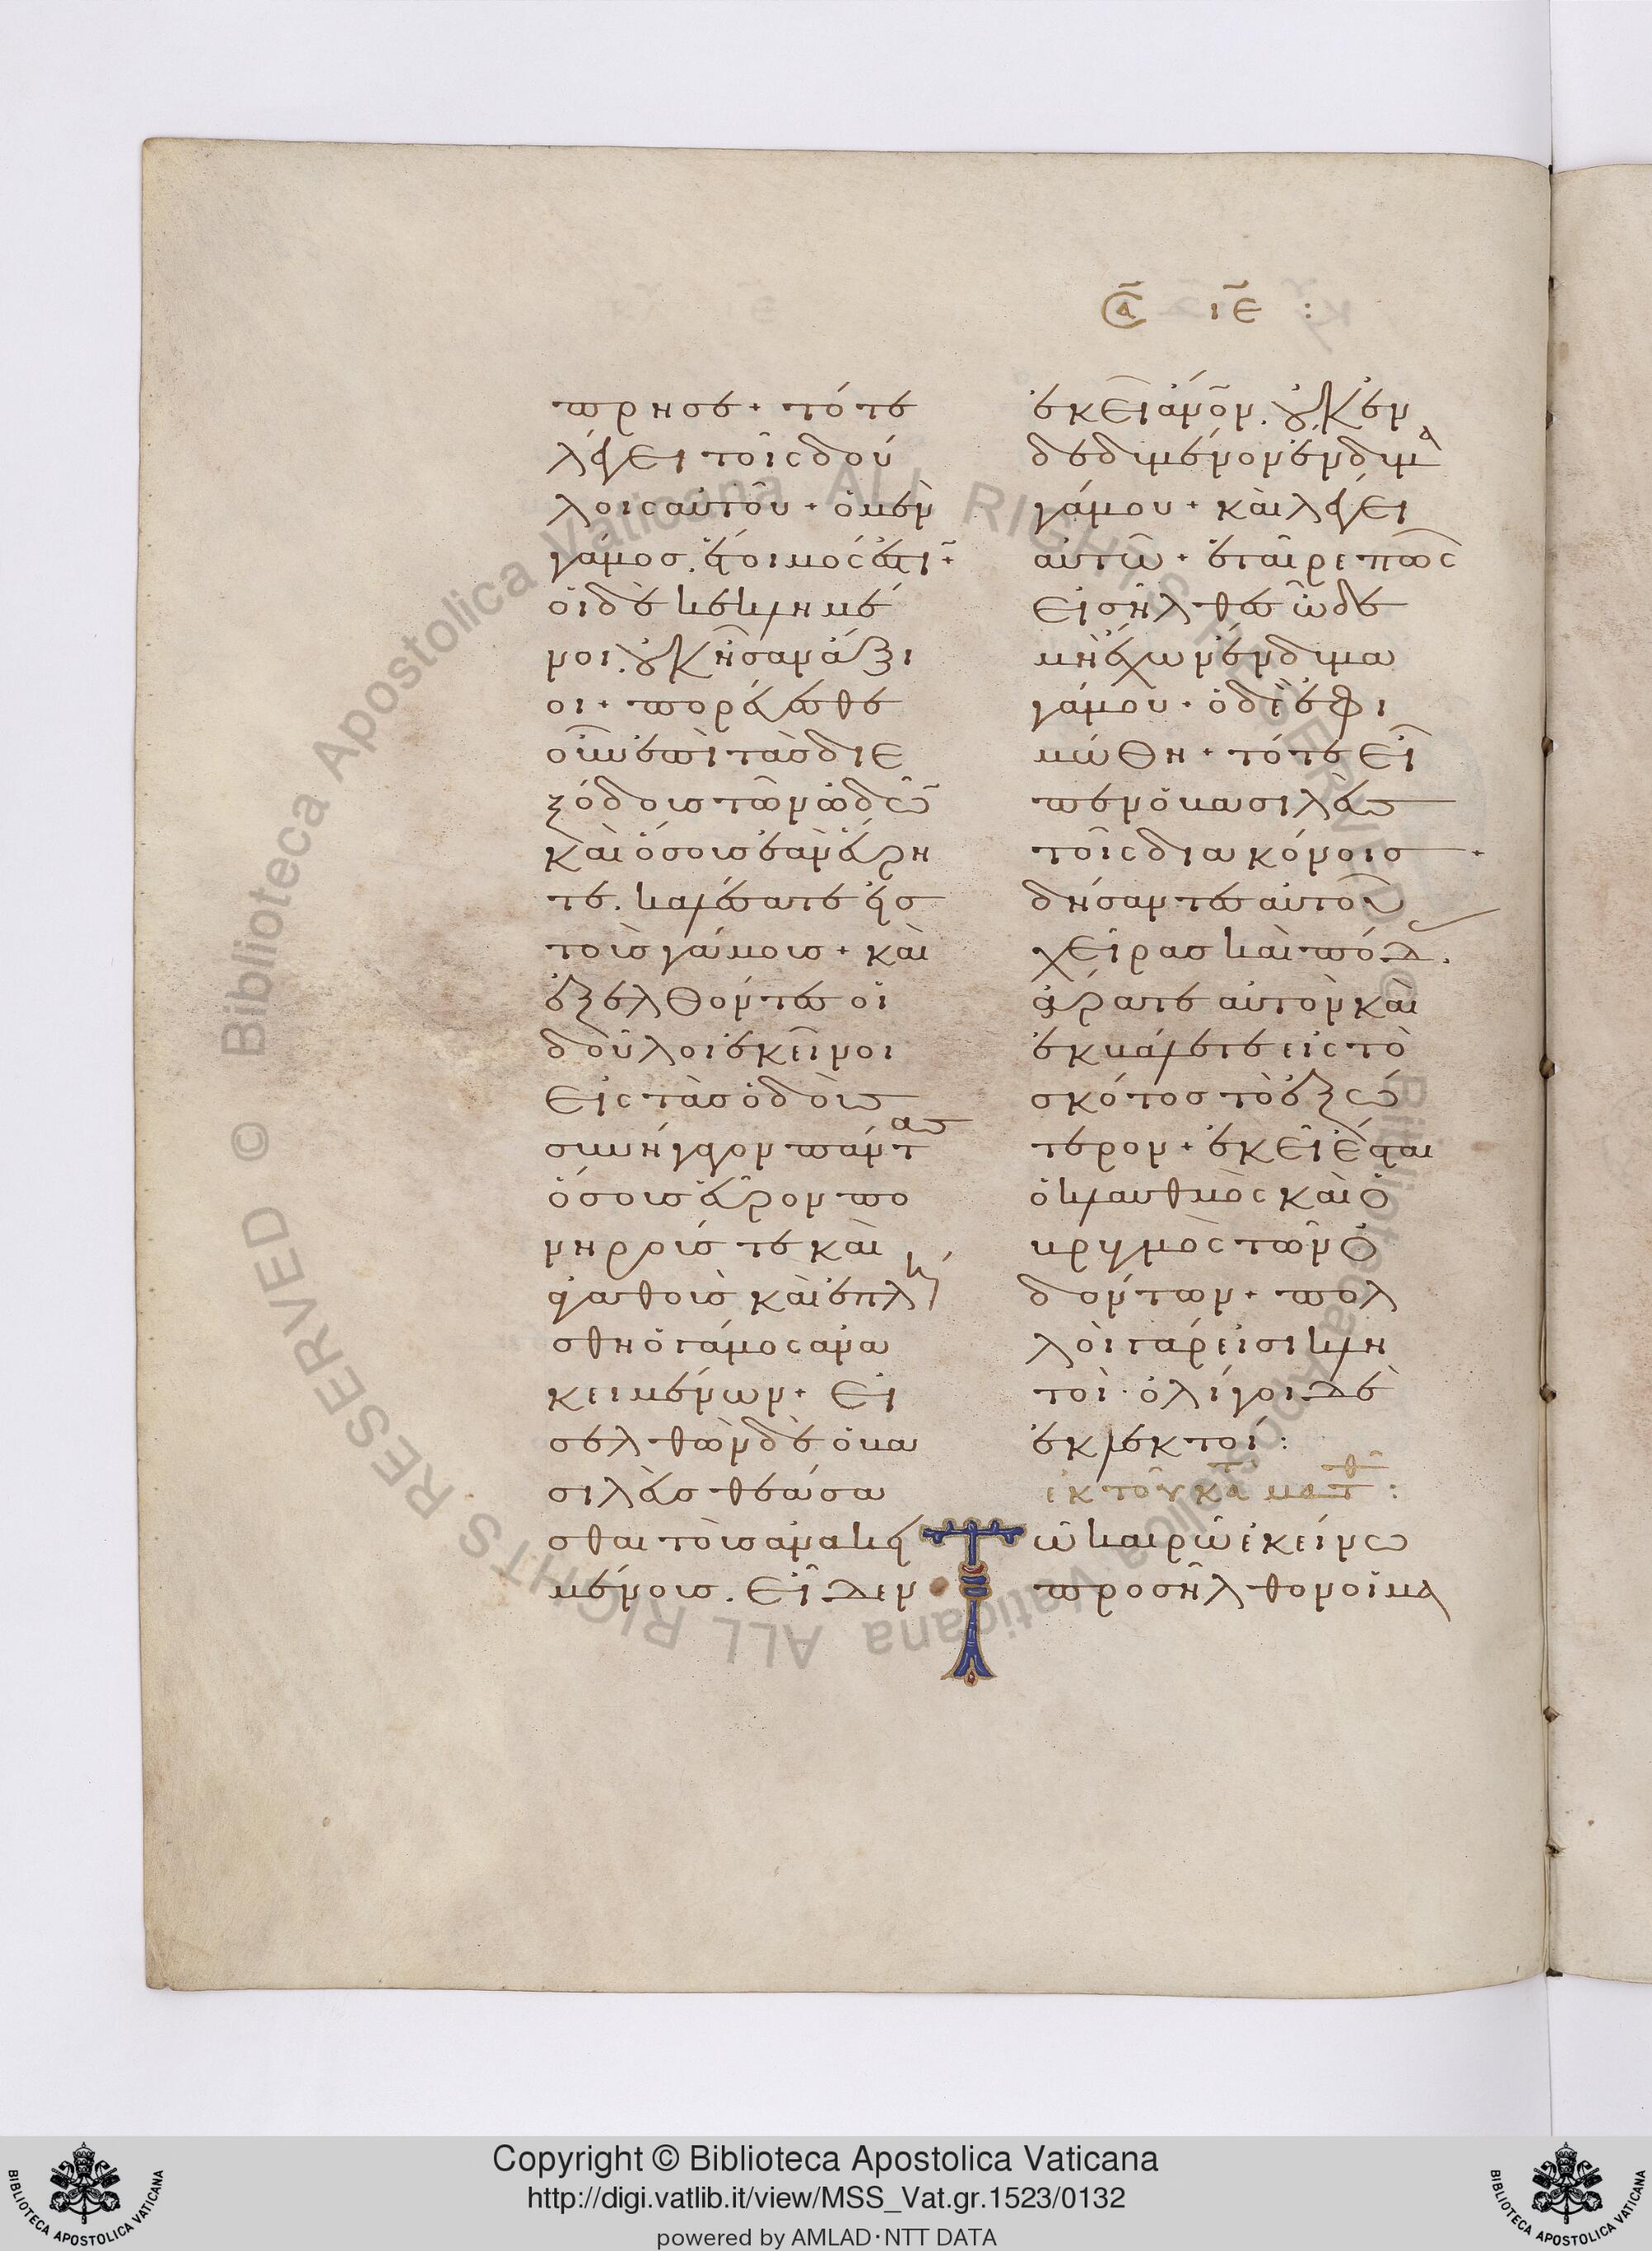 Σα ιε :
πρησε· τότε
λέγει τοῖς δού
λοις αὐτοῦ· ὁ μὲν
γάμος. ἕτοιμός ἐστι·
οἱ δὲ κεκλημέ
νοι. οὐκ ἦσαν ἄξι
οι· πορεύεσθε
οὖν ἐπὶ τὰς διε
ξόδους τῶν ὁδῶ
καὶ ὅσους ἐὰν εὕρη
τε. καλέσατε εἰς
τοὺς γάμους· καὶ
ἐξελθόντες οἱ
δοῦλοι ἐκεῖνοι
εἰς τὰς ὁδοὺς
συνήγαγον πάντας
ὅσους εὗρον πο
νηρούς τε καὶ
ἀγαθοὺς καὶ ἐπλή
σθη ὁ γάμος ἀνα
κειμένων· Εἰ
σελθὼν δὲ ὁ βα
σιλεὺς θεάσα
σθαι τοὺς ἀνακει
μένους. Εἶδεν
ἐκεῖ ἄνον. οὐκ ἐν
δεδυμένον ἔνδυμα
γάμου· καὶ λέγει
αὐτῶ· ἑταῖρε πῶς
εἰσῆλθες ὧδε
μὴ ἔχων ἔνδυμα
γάμου· ὁ δὲ ἐφι
μώθη· τότε εἶ
πεν ὁ βασιλεὺς
τοῖς διακόνοις·
δήσαντες αὐτοῦ
χεῖρας καὶ πόδ.
ἄρατε αὐτὸν καὶ
ἐκβάλετε εἰς τὸ
σκότος τὸ ἐξώ
τερον· ἐκεῖ ἔσται
ὁ κλαυθμὸς καὶ ὁ
βρυγμὸς τῶν ὀ
δόντων· πολ
λοὶ γάρ εἰσι κλη
τοὶ· ὀλίγοι δὲ
ἐκλεκτοί :
ἐκ τοῦ κατ ματθ :
Τῶ καιρῶ ἐκείνω
προσῆλθον οἱ μα
Copyright © Biblioteca Apostolica Vaticana
http://digi.vatlib.it/view/MSS_Vat.gr.1523/0132
powered by AMLAD·NTT DATA